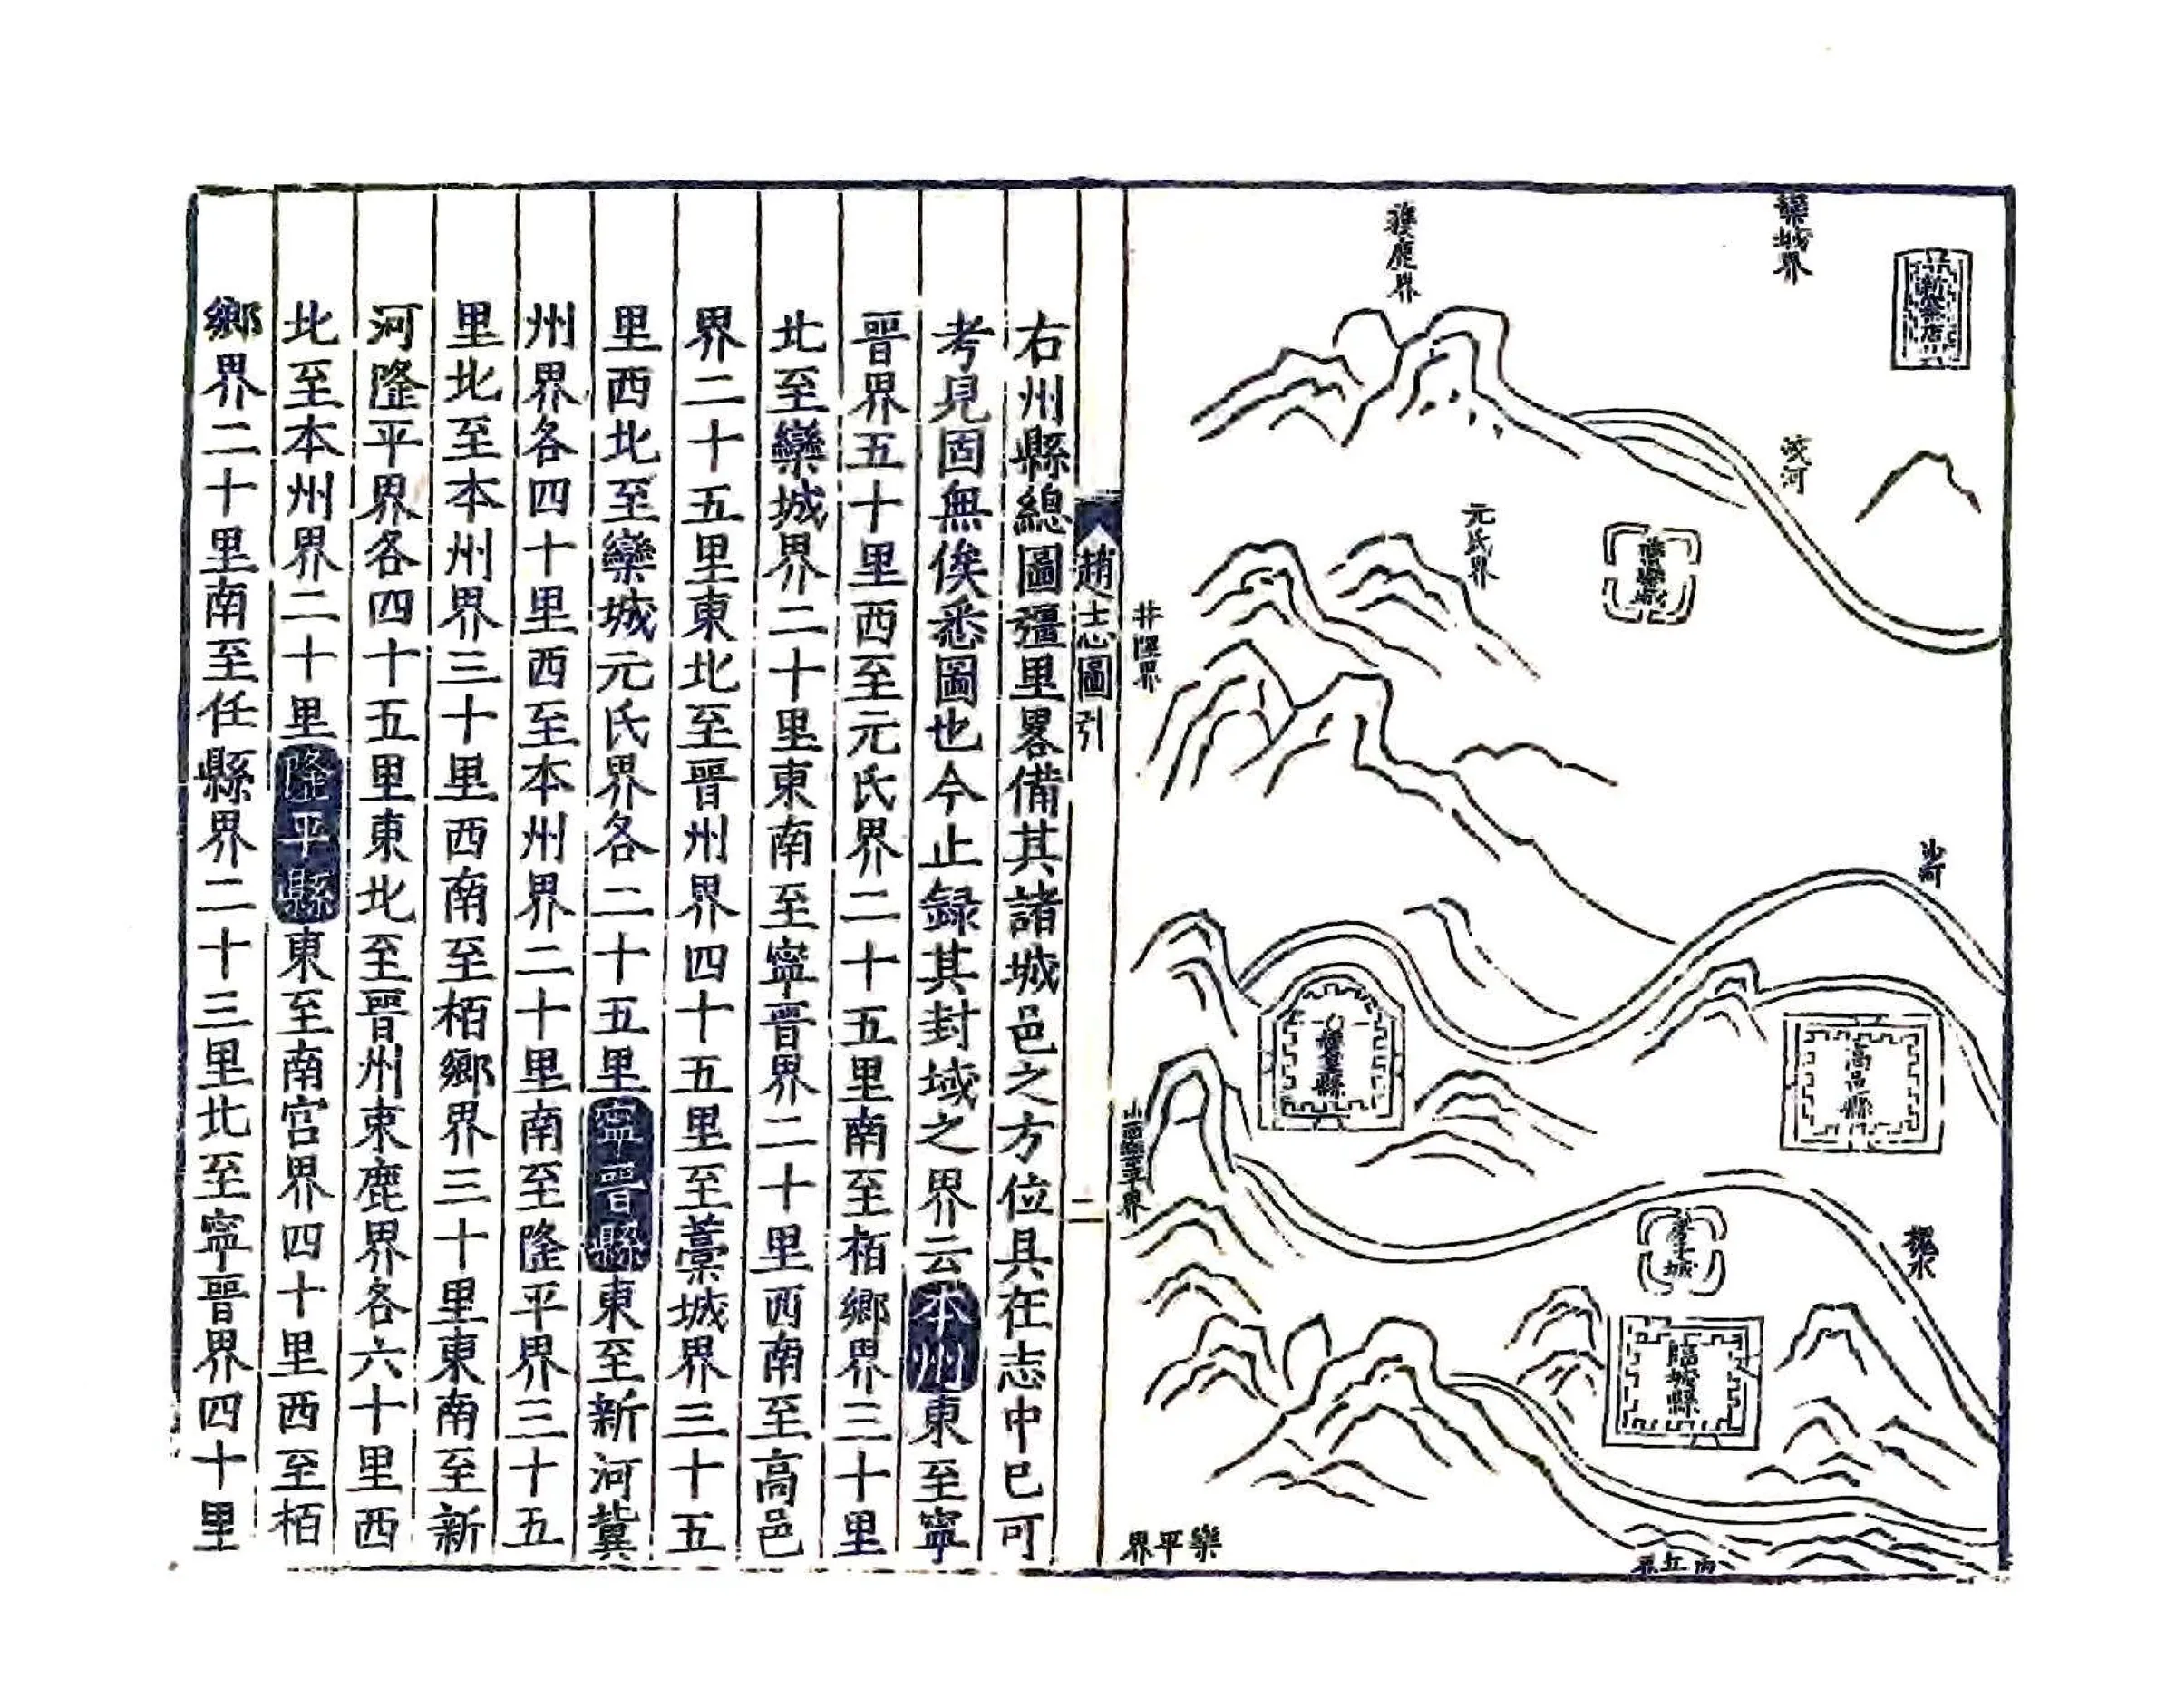 欒城界
新寨店
獲鹿界
洨河
元氏界
舊欒城
井陘界
沙河
贊皇縣
高邑縣
槐水
房士城
臨城縣
樂平界
內丘界
趙志圖引
二
右州縣總圖疆里畧備其諸城邑之方位具在志中已可
考見固無俟悉圖也今止録其封域之界云本州東至寧
晉界五十里西至元氏界二十五里南至栢鄉界三十里
北至欒城界二十里東南至寧晉界二十里西南至高邑
界二十五里東北至晉州界四十五里至藁城界三十五
里西北至欒城元氏界各二十五里寧晉縣東至新河冀
州界各四十里西至本州界二十里南至隆平界三十五
里北至本州界三十里西南至栢鄉界三十里東南至新
河隆平界各四十五里東北至晉州束鹿界各六十里西
北至本州界二十里隆平縣東至南宮界四十里西至栢
鄉界二十里南至任縣界二十三里北至寧晉界四十里